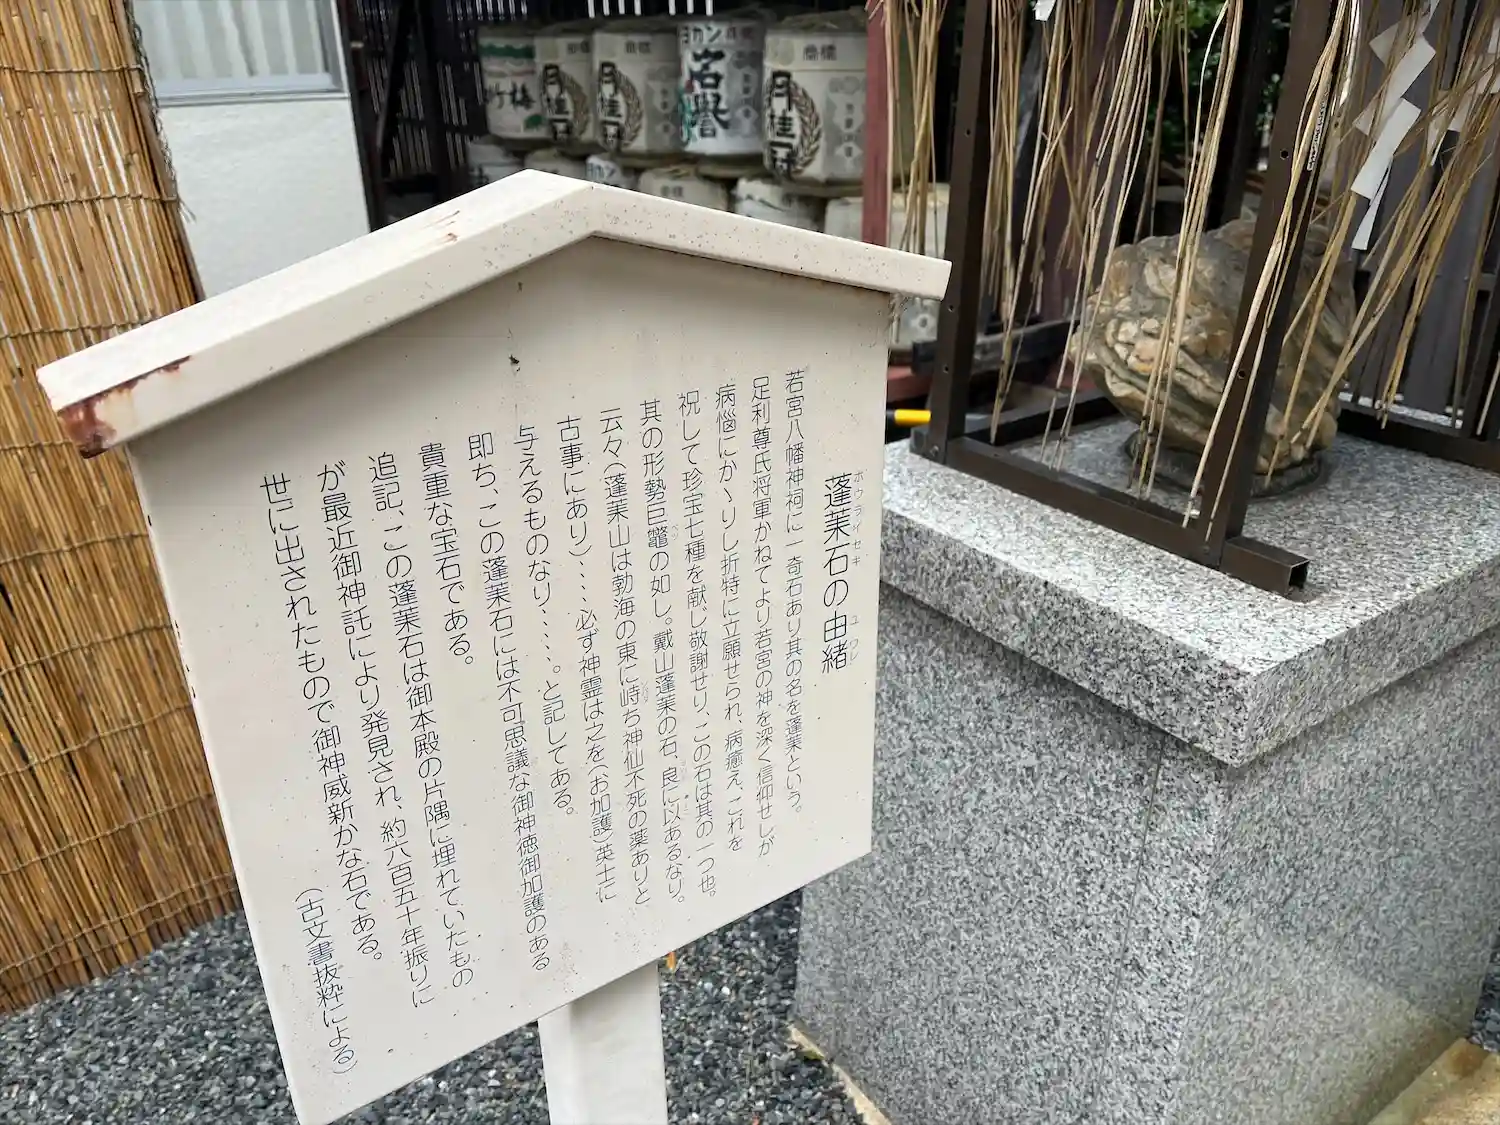 蓬莱石の由緒
ホウライセキ
ユウレ
若宮八幡神祠に一奇石あり其の名を蓬莱という。
足利尊氏将軍かねてより若宮の神を深く信仰せしが
病悩にかゝりし折特に立願せられ、病癒え、これを
祝して珍宝七種を献じ敬謝せり、この石は其の一つ也。
其の形勢巨鼇の如し。戴山蓬莱の石、良に以あるなり。
云々(蓬莱山は勃海の東に峙ち神仙不死の薬ありと
古事にあり)‥‥必ず神霊は之を(お加護)英士に
与えるものなり‥‥。と記してある。
即ち、この蓬莱石には不可思議な御神徳御加護のある
貴重な宝石である。
追記、この蓬莱石は御本殿の片隅に埋れていたもの
が最近御神託により発見され、約六百五十年振りに
世に出されたもので御神威新かな石である。
(古文書抜粋による)
竹梅
月桂冠
月桂冠
名誉
月桂冠